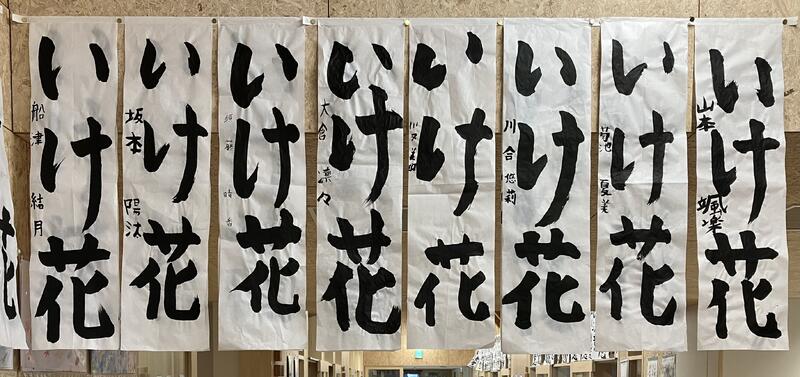 いけ花
船津 結月
いけ花
坂本 陽汰
いけ花
いけ花
大倉 凛々
いけ花
いけ花
川合 悠莉
いけ花
菊池 夏美
いけ花
山本 颯樂
花